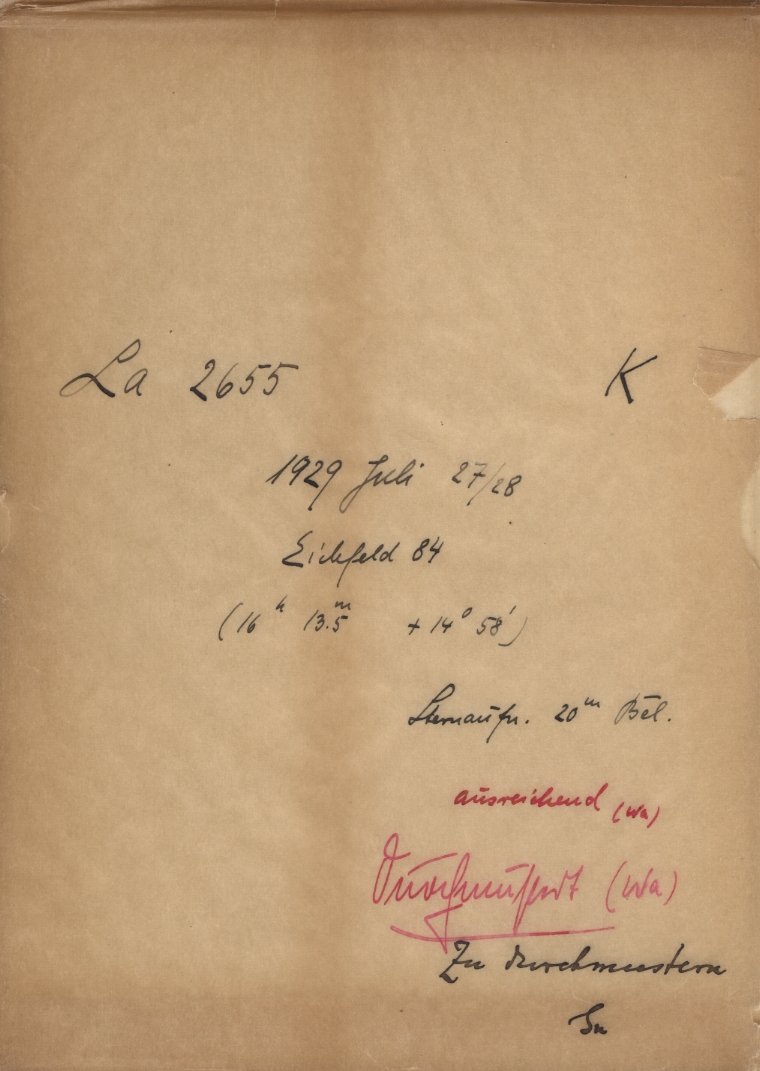 La 2655 K
1929 Juli 27/28
Eichfeld 84
(16ʰ 13.5ᵐ +14° 58')
Sternaufn. 20ᵐ Bel.
ausreichend (Wa)
Durchmustert (Wa)
Zu durchmustern